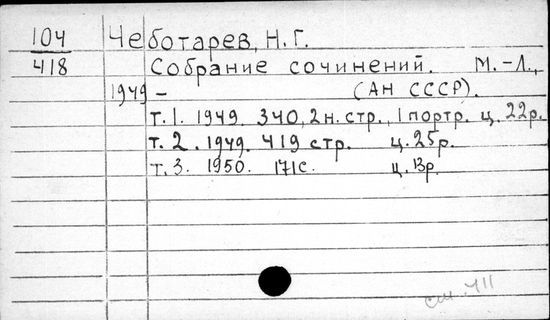 104 Чеботарев, Н.Г.
418 Собрание сочинений. М.-Л.,
1949 - (АН СССР).
т.1. 1949. 340, 2 н. стр., 1 портр. ц. 22р.
т.2. 1949. 419 стр. ц. 25р.
т.3. 1950. 171с. ц. 13р.